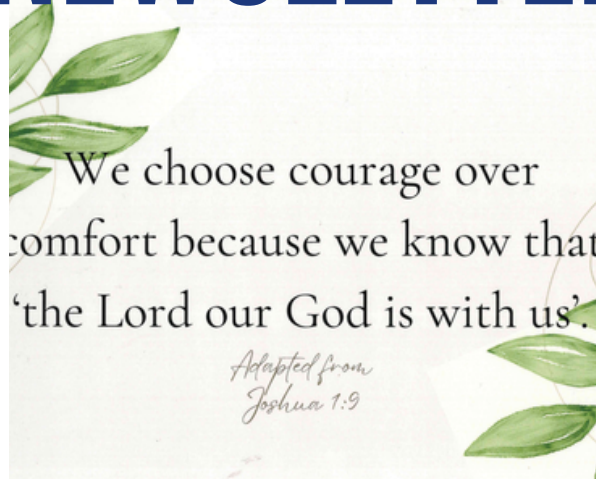 NEWSLETTER
We choose courage over
comfort because we know that
‘the Lord our God is with us’.
Adapted from
Joshua 1:9